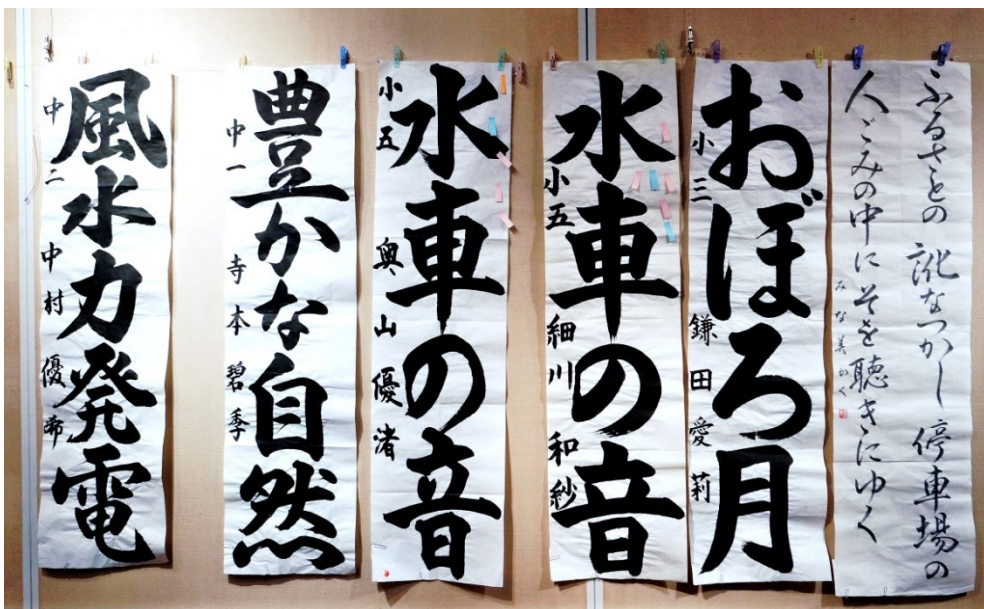 ふるさとの 訛なつかし 停車場の
人ごみの中に そを聴きにゆく
みな美かく
おぼろ月
小三 鎌田愛莉
水車の音
小五 細川和紗
水車の音
小五 奥山優渚
豊かな自然
中一 寺本碧季
風水力発電
中二 中村優希